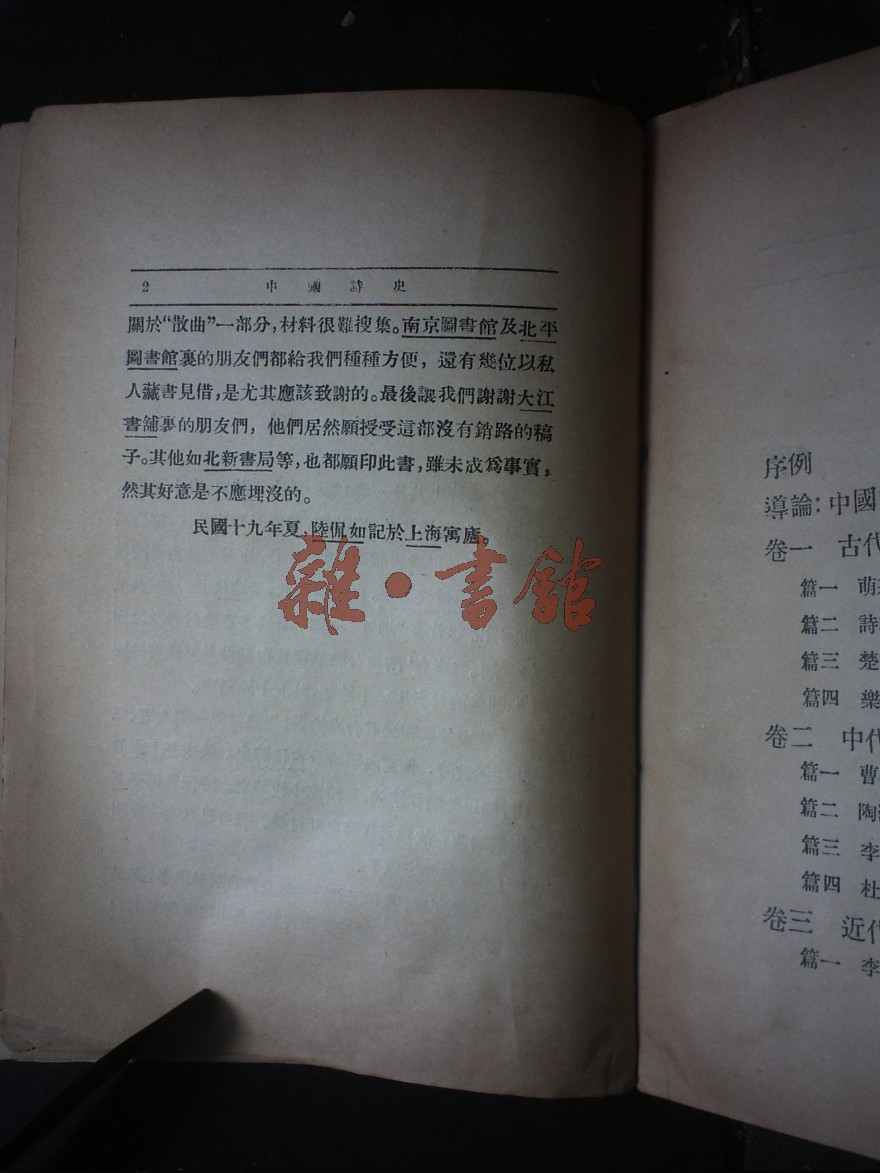 2 中國詩史
關於“散曲”一部分，材料很難搜集。南京圖書館及北平
圖書館裏的朋友們都給我們種種方便，還有幾位以私
人藏書見借，是尤其應該致謝的。最後讓我們謝謝大江
書舖裏的朋友們，他們居然願授受這部沒有銷路的稿
子。其他如北新書局等，也都願印此書，雖未成爲事實，
然其好意是不應埋沒的。
民國十九年夏，陸侃如記於上海寓廬。
雜·書館
序例
導論：中國
卷一 古代
篇一 萌
篇二 詩
篇三 楚
篇四 樂
卷二 中代
篇一 曹
篇二 陶
篇三 李
篇四 杜
卷三 近代
篇一 李